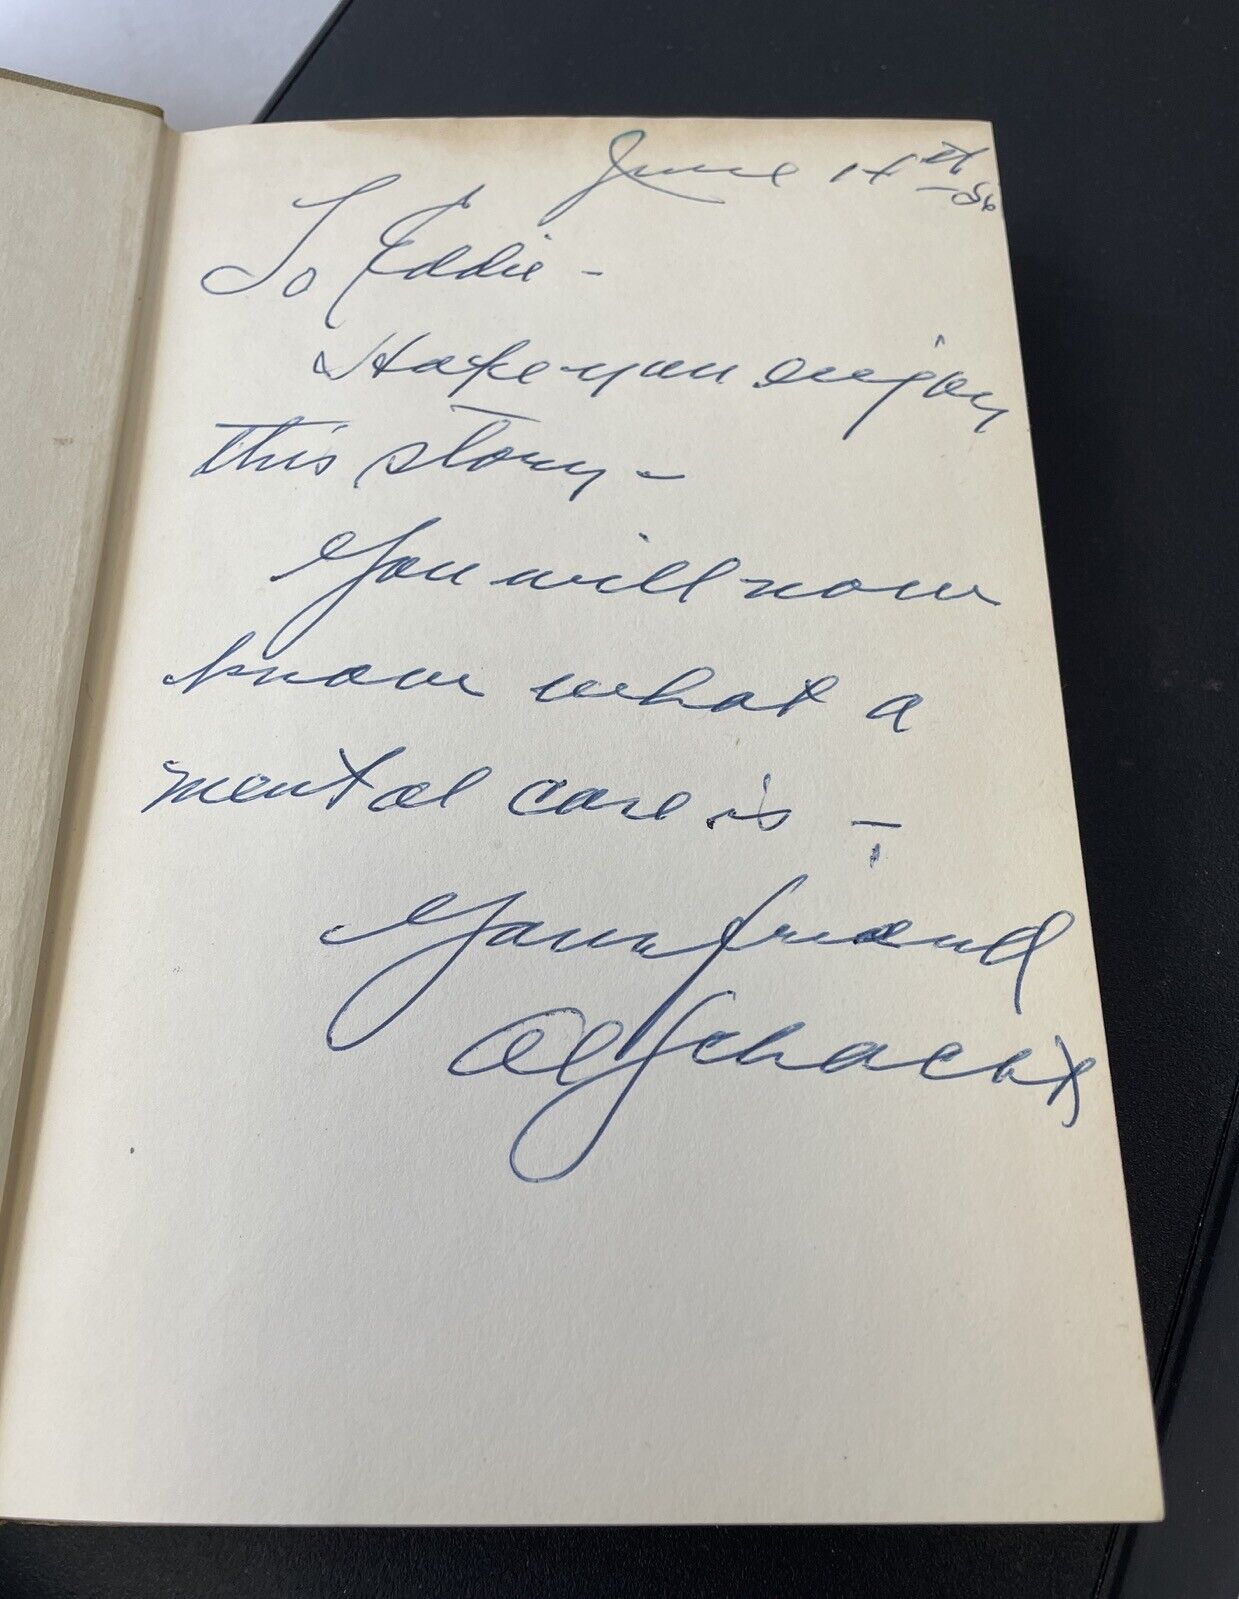 June 14th -56
To Eddie -
Hope you enjoy
this story -
You will now
know what a
mental case is -
Your friend
Al Schacht